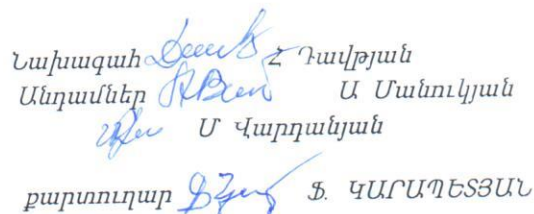 Նախագահ Հ Դավթյան
Անդամներ Ա Մանուկյան
Մ Վարդանյան
քարտուղար Ֆ. ԿԱՐԱՊԵՏՅԱՆ